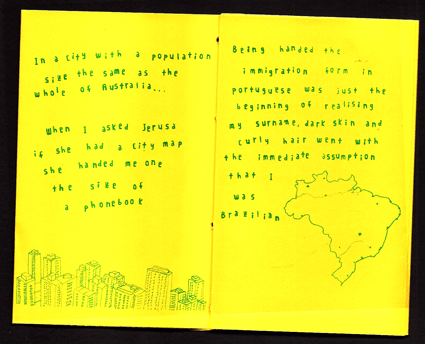 In a city with a population
size the same as the
whole of Australia...
When I asked Jerusa
if she had a city map
she handed me one
the size of
a phonebook
Being handed the
immigration form in
portuguese was just the
beginning of realising
my surname, dark skin and
curly hair went with
the immediate assumption
that I
was
Brazilian